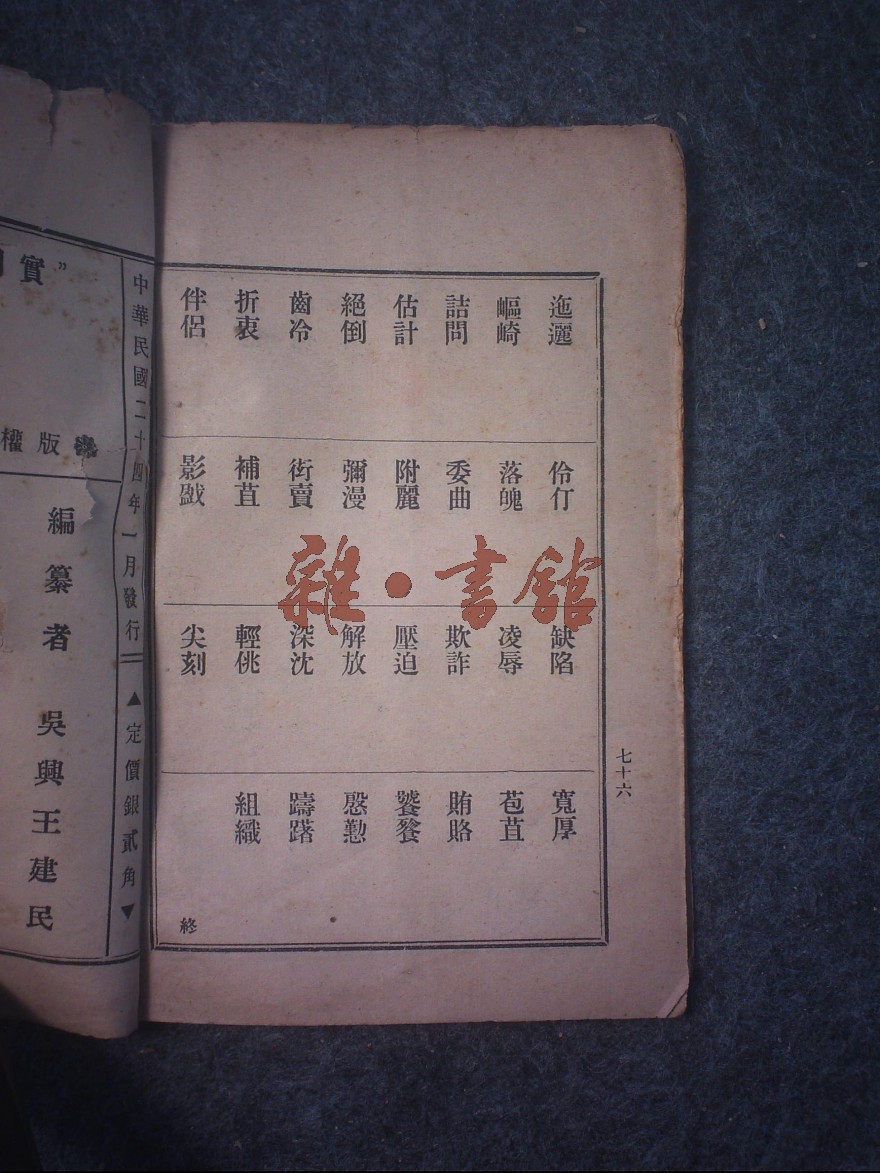 迤邐
嶇崎
詰問
估計
絕倒
齒冷
折衷
伴侶
伶仃
落魄
委曲
附麗
彌漫
衒賣
補苴
影戲
缺陷
凌辱
欺詐
壓迫
解放
深沈
輕佻
尖刻
寬厚
苞苴
賄賂
饕餮
慇懃
躊躇
組織
終
七十六
雜·書舘
中華民國二十四年一月發行
▲定價銀貳角▼
實
版權
編纂者 吳興王建民